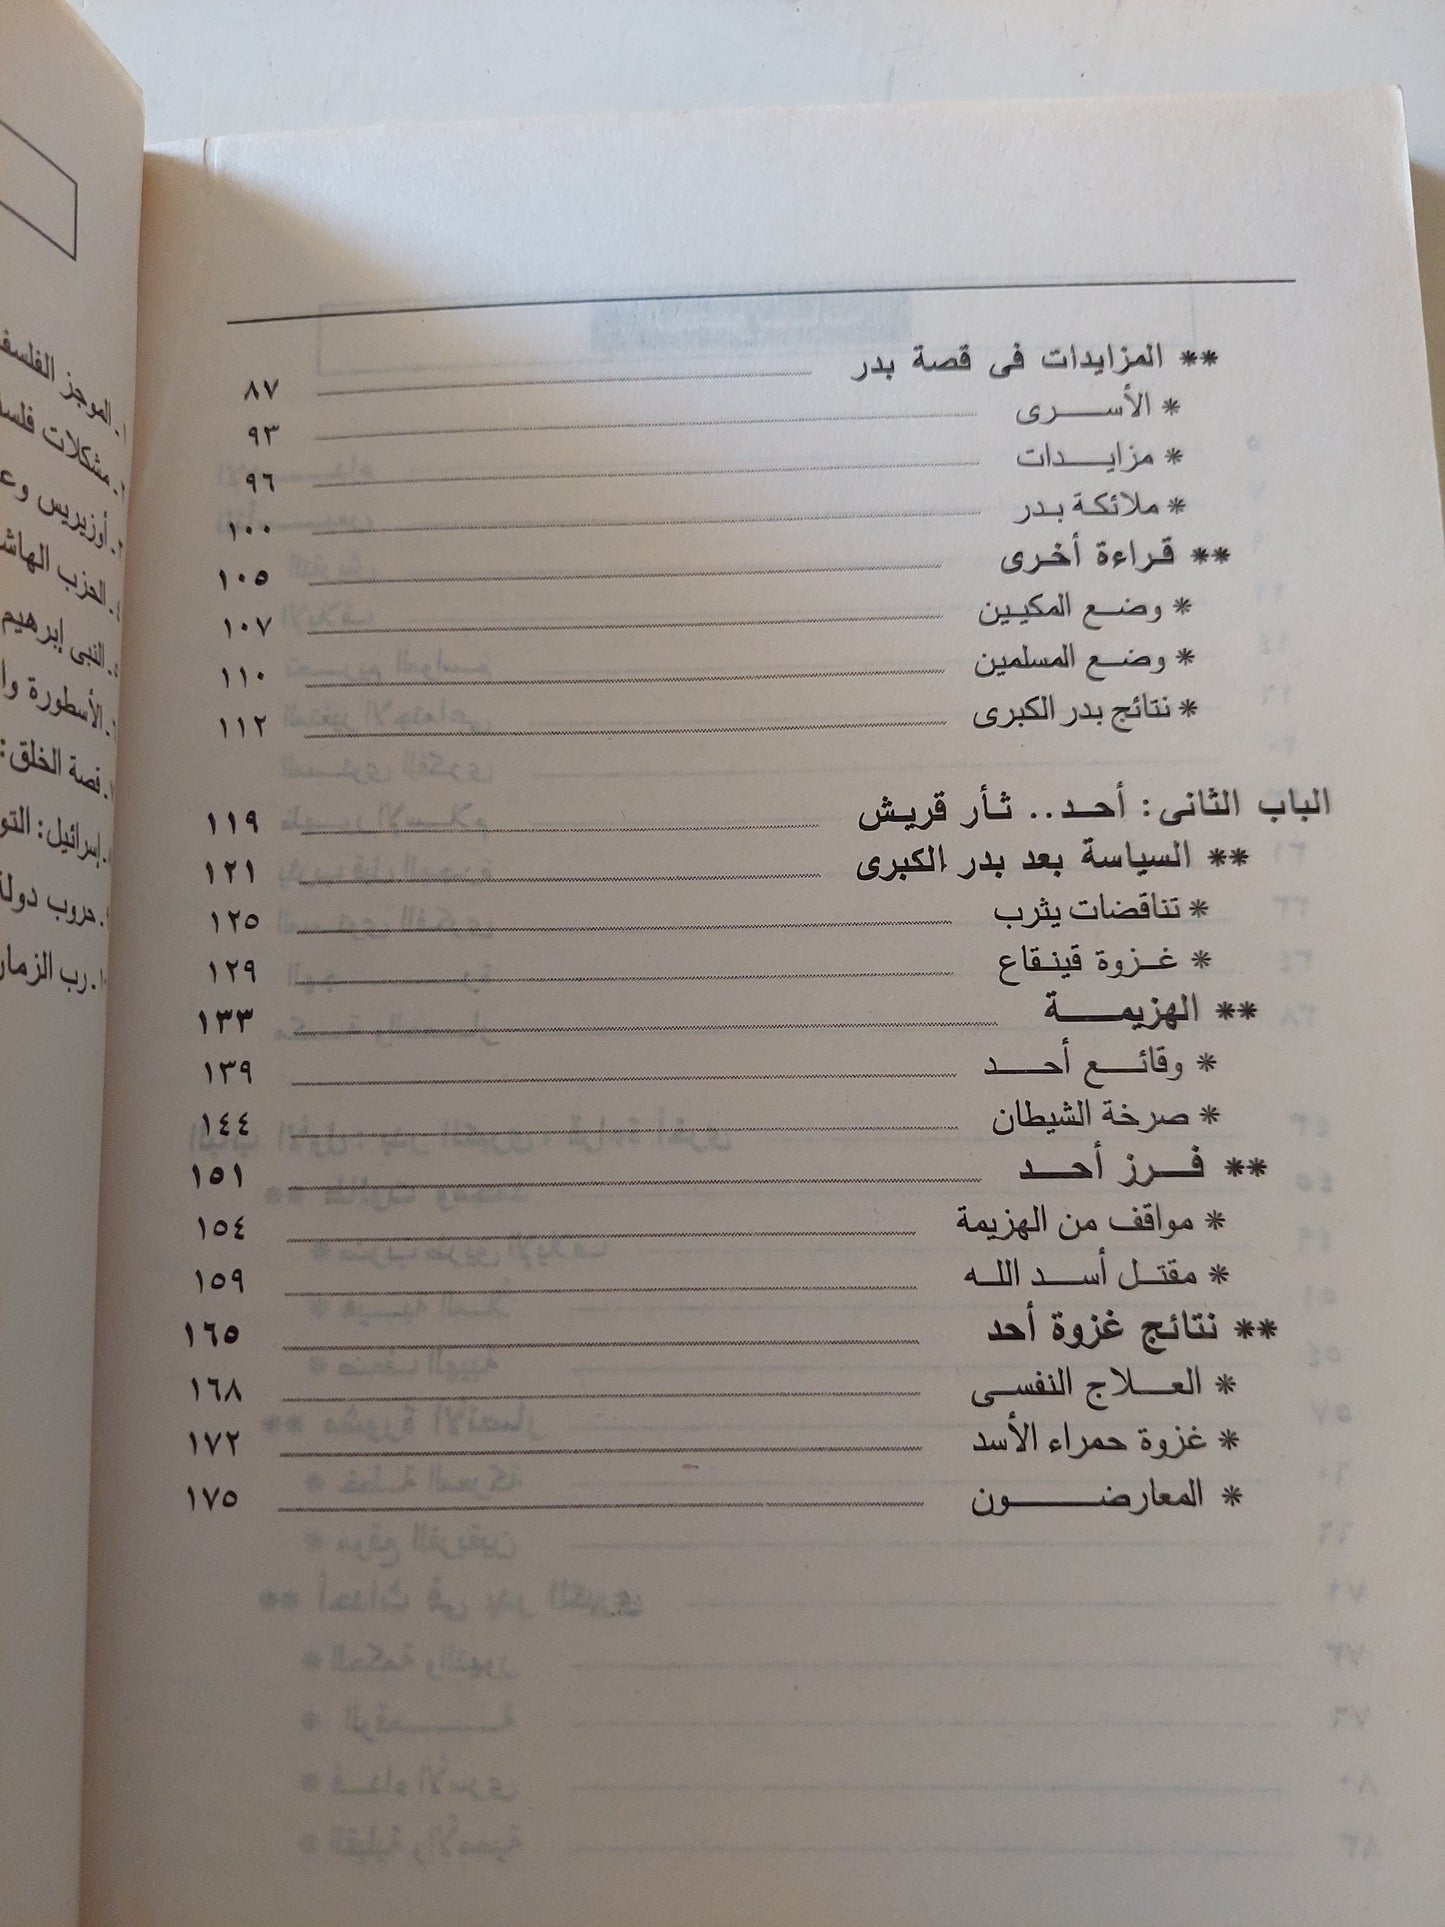 ** المزايدات فى قصة بدر ٨٧
* الأســـرى ٩٣
* مزايـــدات ٩٦
* ملائكة بدر ١٠٠
** قراءة أخرى ١٠٥
* وضـع المكيين ١٠٧
* وضـع المسلمين ١١٠
* نتائج بدر الكبرى ١١٢
الباب الثانى: أحـد.. ثـأر قريش ١١٩
** السياسة بعد بدر الكبرى ١٢١
* تناقضات يثرب ١٢٥
* غـزوة قينـقاع ١٢٩
** الهزيمـــة ١٣٣
* وقائـع أحـــد ١٣٩
* صرخة الشيطان ١٤٤
** فــرز أحــد ١٥١
* مواقف من الهزيمة ١٥٤
* مقتـل أسـد اللـه ١٥٩
** نتائج غزوة أحد ١٦٥
* العـــلاج النفسـى ١٦٨
* غزوة حمراء الأسد ١٧٢
* المعارضـــــون ١٧٥
١- الموجز
٢- مشكلات
٣- أوزيريس
٤- الحزب
٥- النبى إبرهيم
٦- الأسطورة
٧- قصة الخلق:
٨- إسرائيل:
٩- حروب دولة
١٠- رب